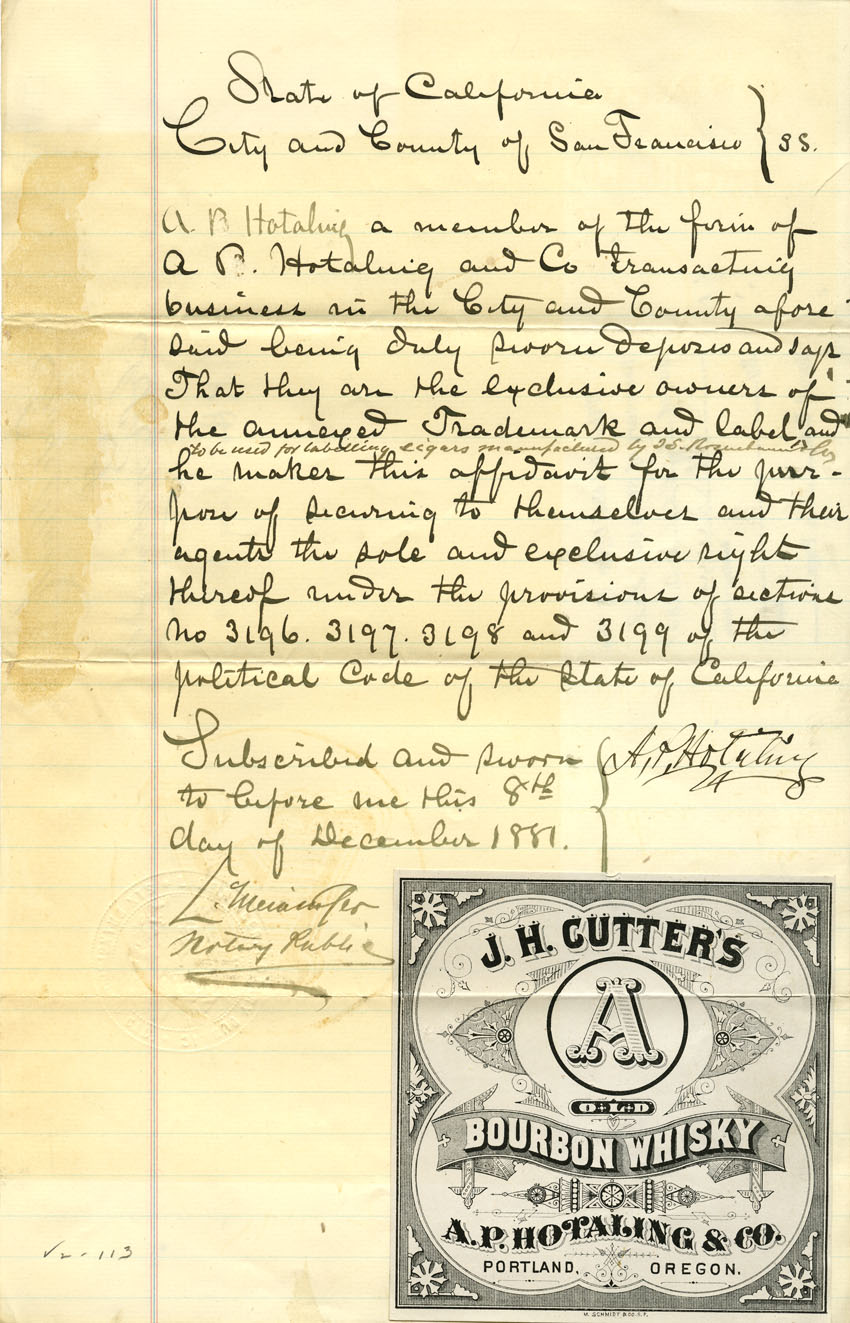 State of California
City and County of San Francisco } SS.
A. P. Hotaling a member of the firm of
A. P. Hotaling and Co transacting
business in the City and County afore
said being duly sworn deposes and says
That they are the exclusive owners of
the annexed Trademark and label and
to be used for labelling cigars manufactured by
he makes this affidavit for the pur-
pose of securing to themselves and their
agents the sole and exclusive right
thereof under the provisions of sections
No 3196. 3197. 3198 and 3199 of the
political Code of the State of California
Subscribed and sworn
to before me this 8th
day of December 1881.
A. P. Hotaling
L.
Notary Public
J. H. CUTTER'S
A
OLD
BOURBON WHISKY
A. P. HOTALING & CO.
PORTLAND, OREGON.
M. SCHMIDT & CO. S. F.